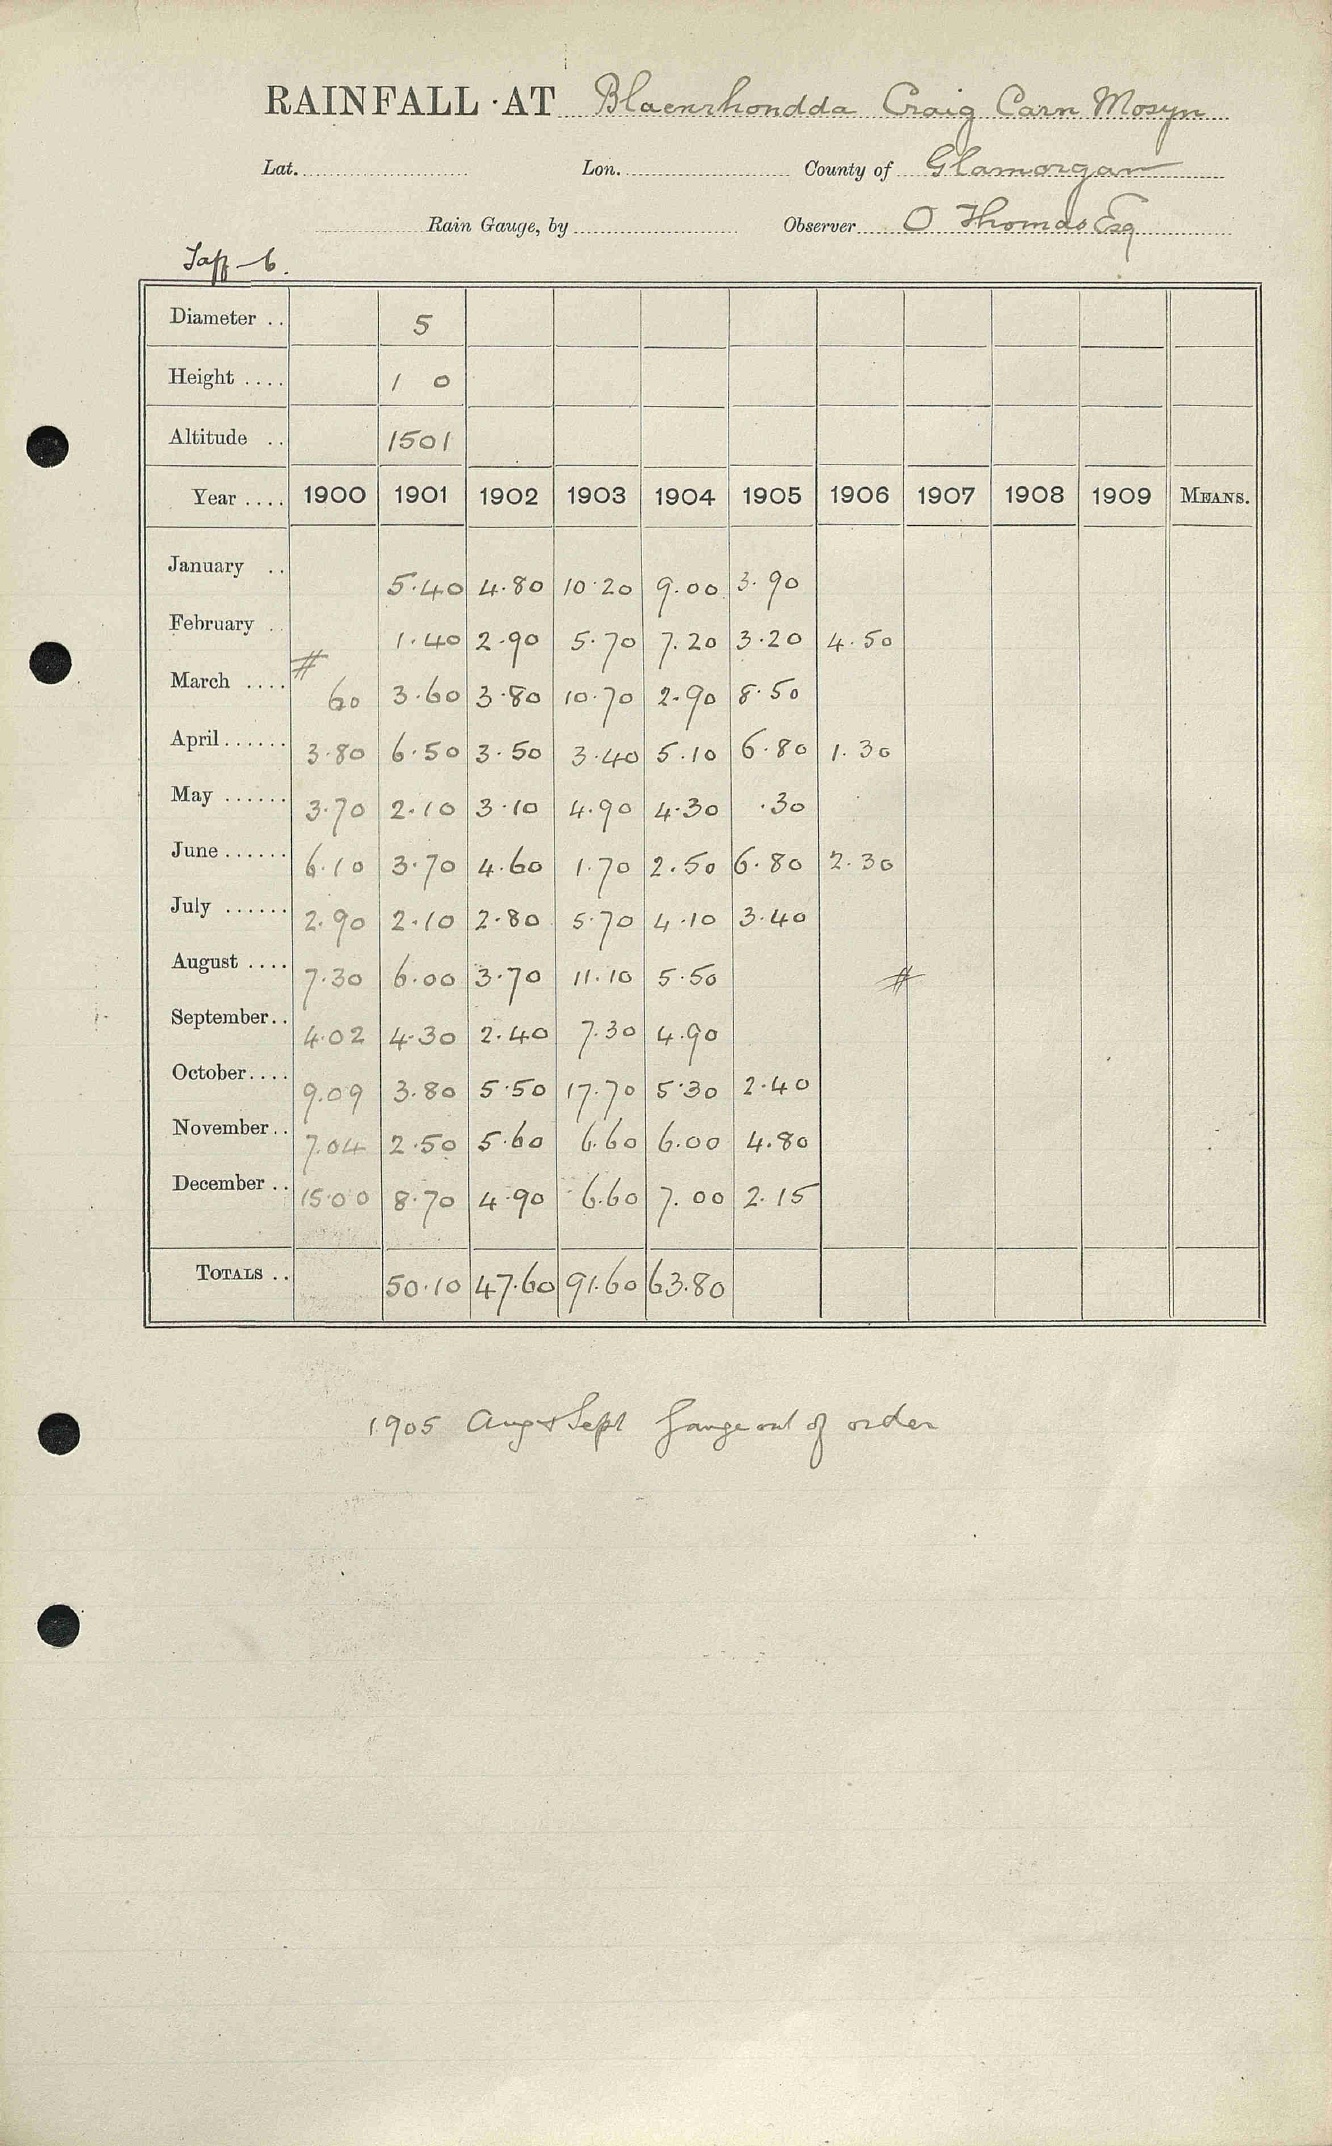 RAINFALL AT Blaenrhondda Craig Carn Mosyn
Lat. Lon. County of Glamorgan
Rain Gauge, by Observer O Thomas Esq
Taff - 6.
Diameter .. 5
Height .... 1 0
Altitude .. 1501
Year .... 1900 1901 1902 1903 1904 1905 1906 1907 1908 1909 MEANS.
January .. 5.40 4.80 10.20 9.00 3.90
February .. 1.40 2.90 5.70 7.20 3.20 4.50
March .... # 60 3.60 3.80 10.70 2.90 8.50
April ...... 3.80 6.50 3.50 3.40 5.10 6.80 1.30
May ...... 3.70 2.10 3.10 4.90 4.30 .30
June ...... 6.10 3.70 4.60 1.70 2.50 6.80 2.30
July ...... 2.90 2.10 2.80 5.70 4.10 3.40
August .... 7.30 6.00 3.70 11.10 5.50 #
September.. 4.02 4.30 2.40 7.30 4.90
October.... 9.09 3.80 5.50 17.70 5.30 2.40
November.. 7.04 2.50 5.60 6.60 6.00 4.80
December .. 15.00 8.70 4.90 6.60 7.00 2.15
TOTALS .. 50.10 47.60 91.60 63.80
1905 Aug & Sept Gauge out of order